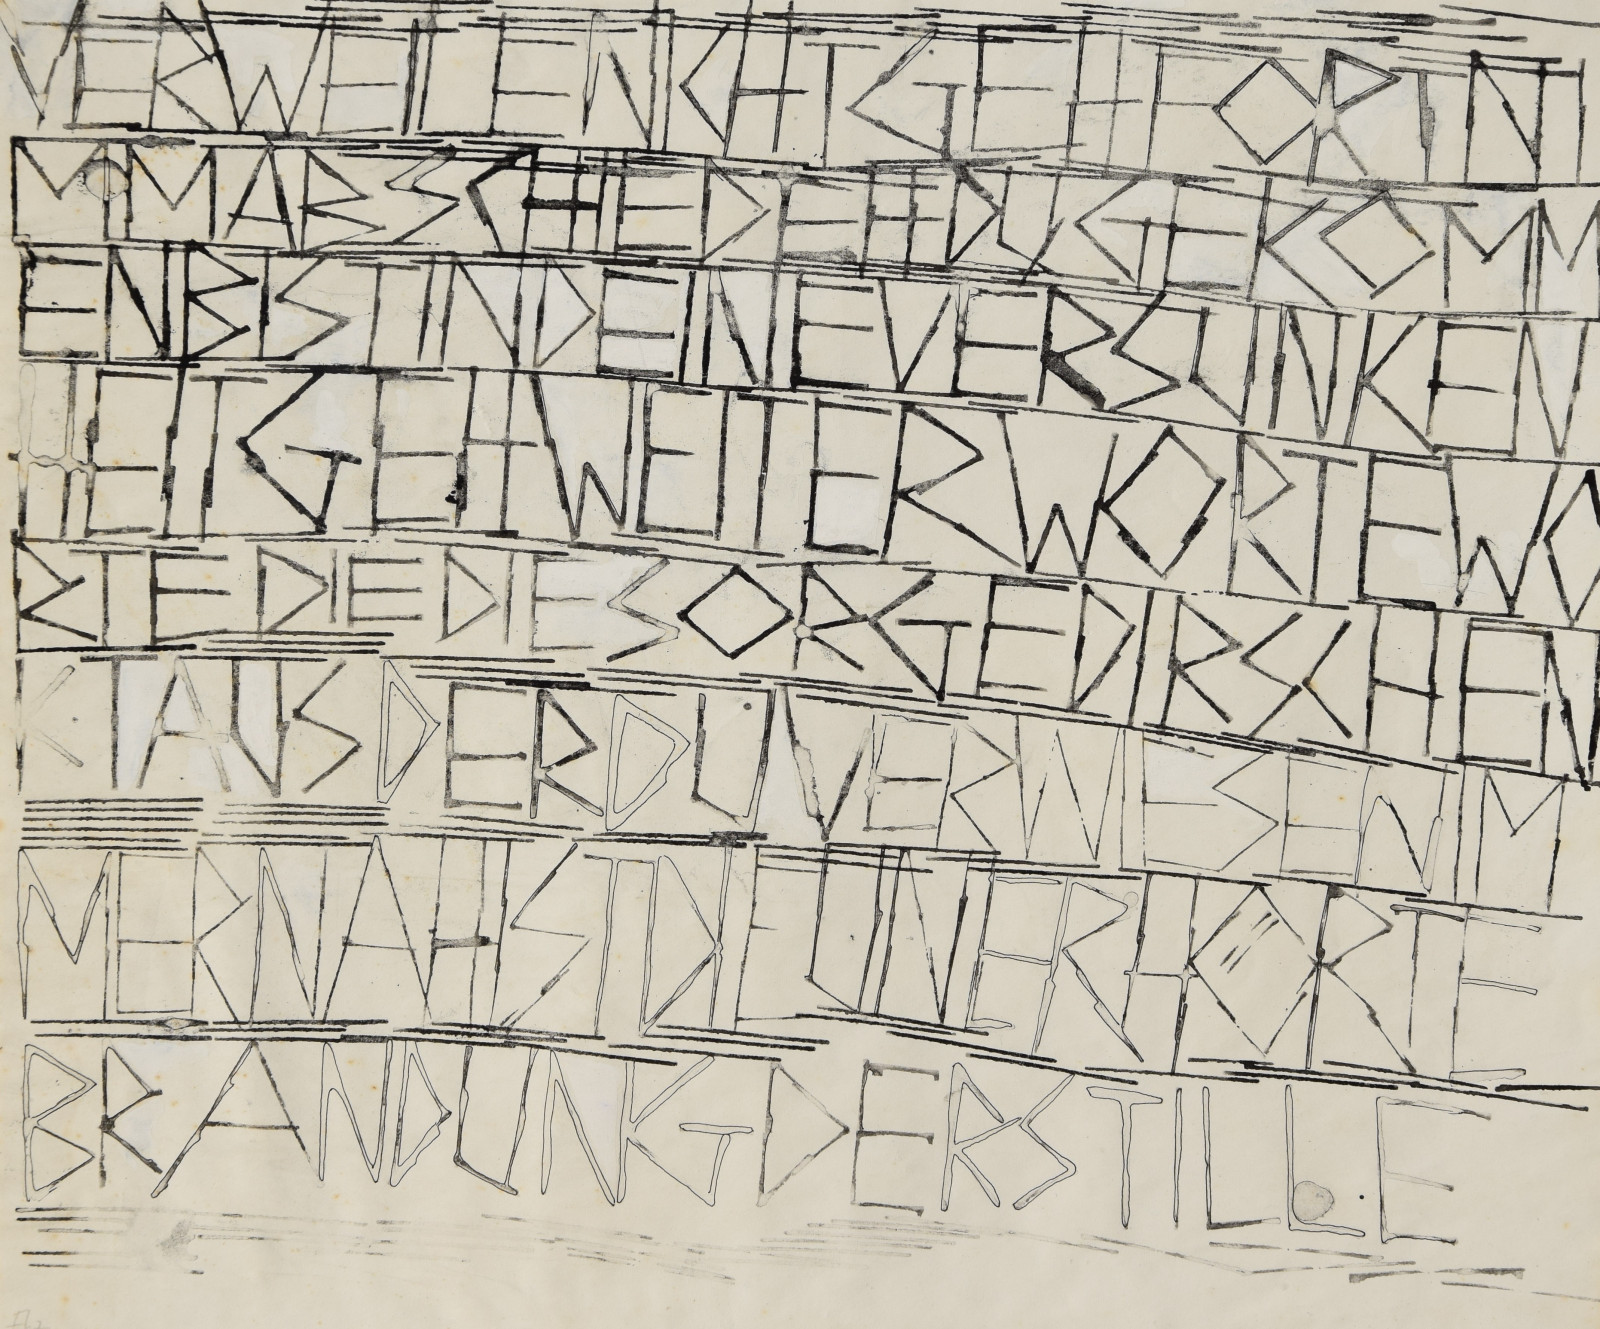 VERWEILENICHTGEHFORTNI
MMABSCHIEDEHDUGEKOMM
ENBISTINDEINEVERSUNKEN
HEITGEHWEITERWORTEWO
RTEDIEDIESORGEDIRSCHEN
KTAUSDERDUVERWIESENIM
MERNAHISTDIEUNERHÖRTE
BRANDUNGDERSTILLE